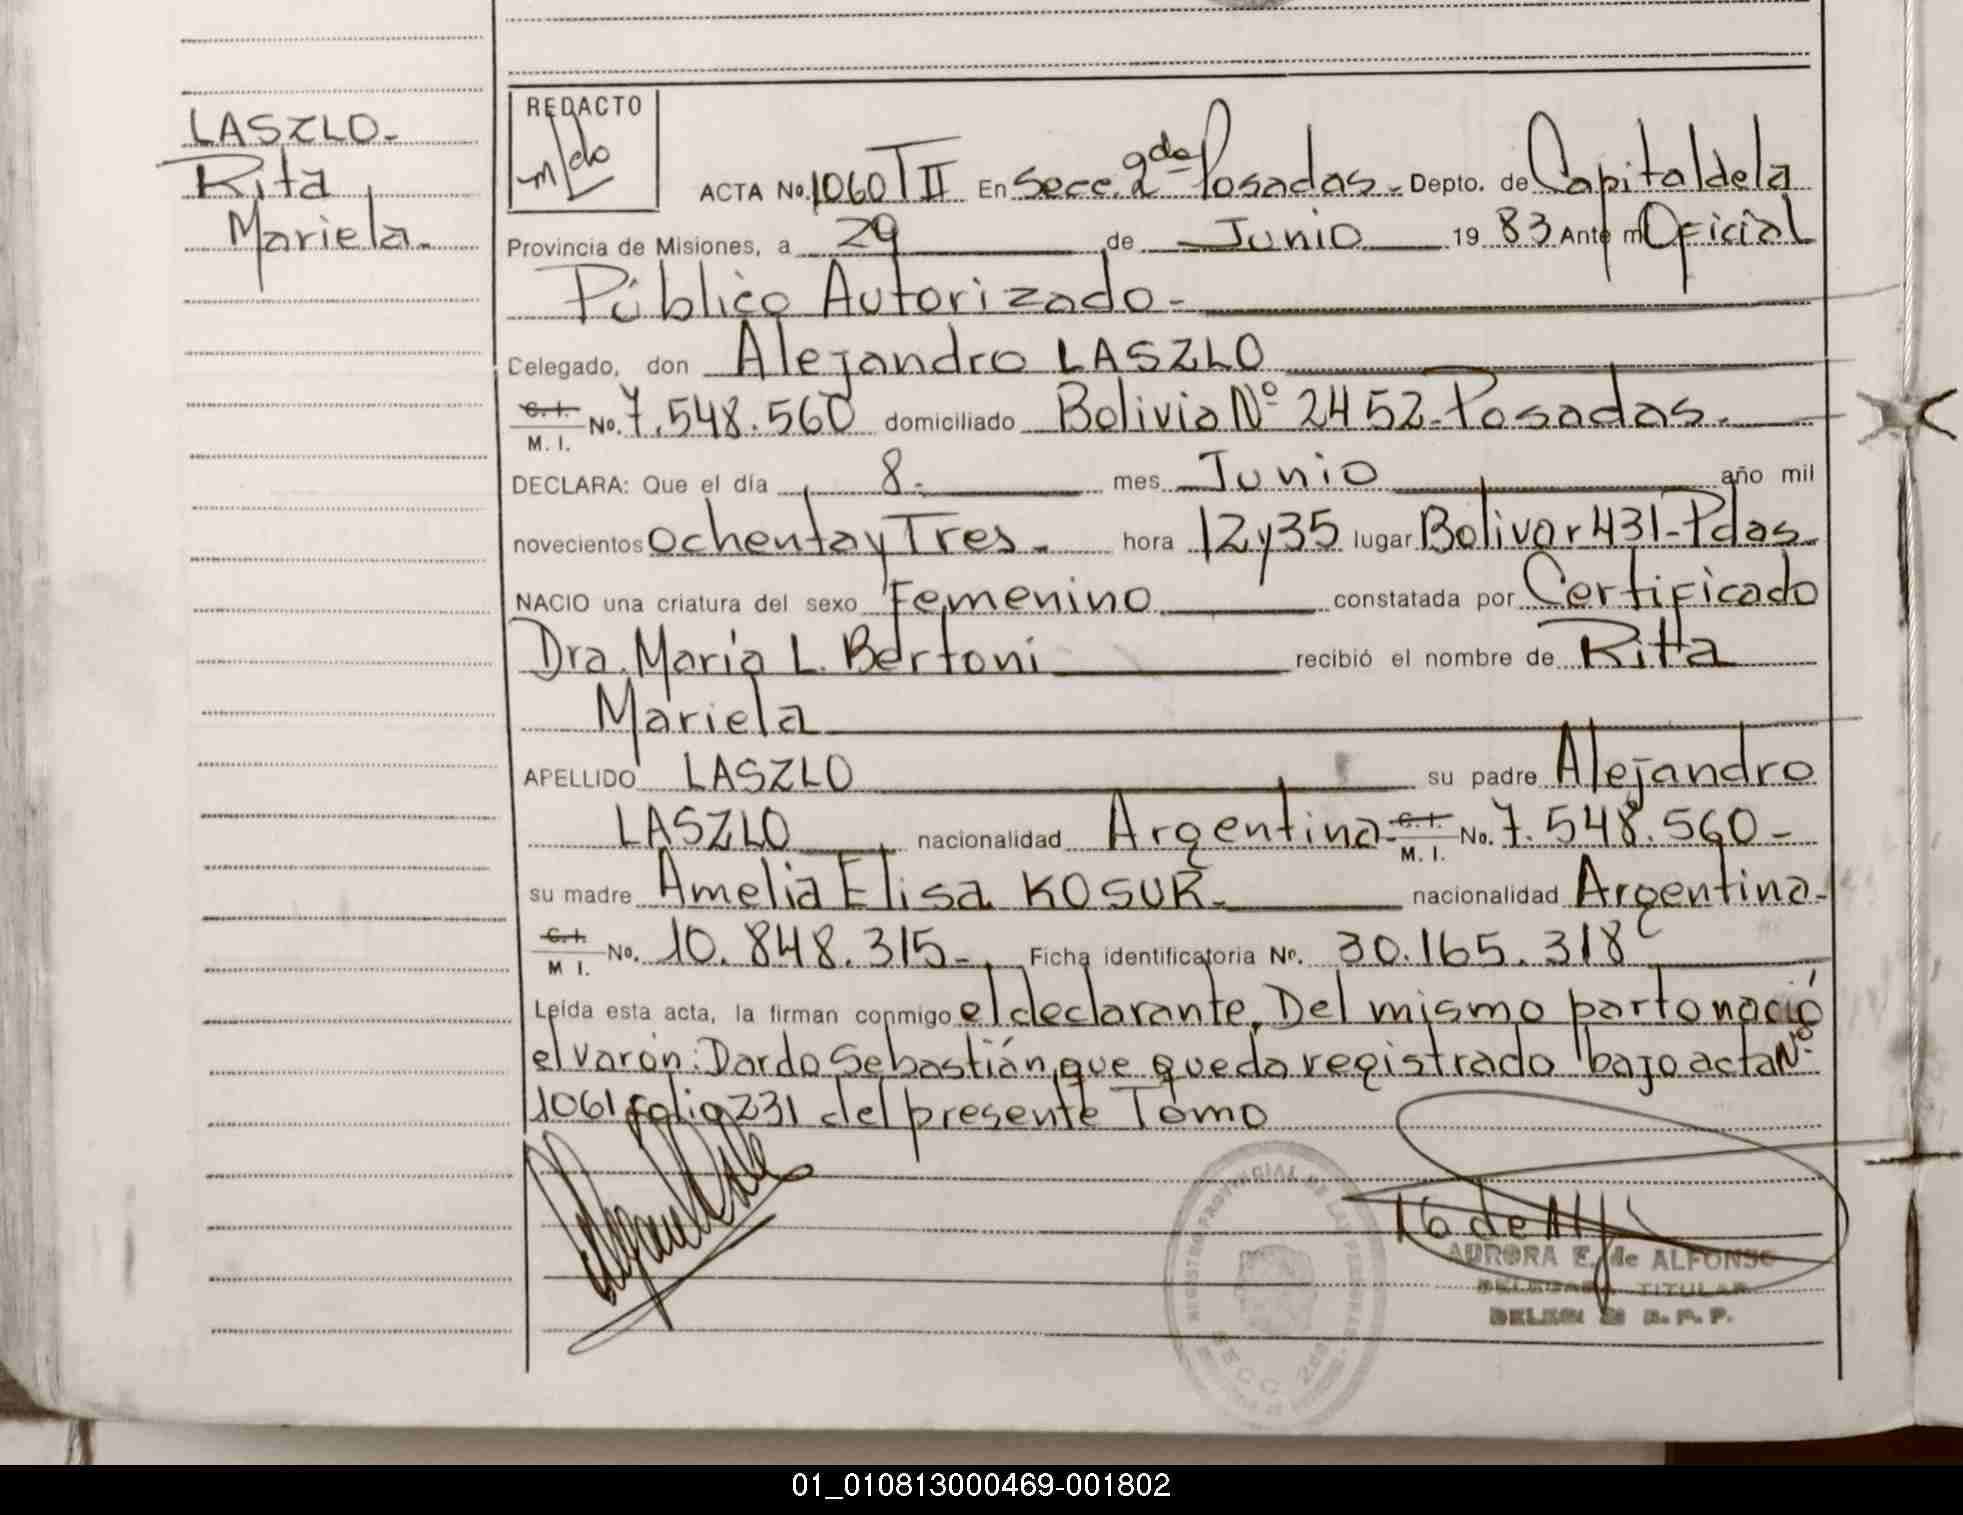 LASZLO-
Rita
Mariela.
REDACTO
ACTA No. 1060 T II En Secc. 2da Posadas- Depto. de Capital de la
Provincia de Misiones, a 29 de Junio 19 83 Ante mí Oficial
Público Autorizado-
Celegado, don Alejandro LASZLO
C. I. M. I. No. 7.548.560 domiciliado Bolivia Nº 2452-Posadas.
DECLARA: Que el día 8- mes Junio año mil
novecientos ochenta y Tres- hora 12 y 35 lugar Bolivar 431-Pdas.
NACIO una criatura del sexo Femenino constatada por Certificado
Dra. María L. Bertoni recibió el nombre de Rita
Mariela
APELLIDO LASZLO su padre Alejandro
LASZLO nacionalidad Argentina- C. I. M. I. No. 7.548.560-
su madre Amelia Elisa KOSUR- nacionalidad Argentina-
C. I. M I. No. 10.848.315- Ficha identificatoria Nº. 30.165.318
Leída esta acta, la firman conmigo el declarante. Del mismo parto nació
el varón: Dardo Sebastián, que queda registrado bajo acta Nº
1061 folio 231 del presente Tomo
REGISTRO PROVINCIAL DE LAS PERSONAS
SECC. 2da
AURORA E. de ALFONSO
DELEGADA TITULAR
01_010813000469-001802